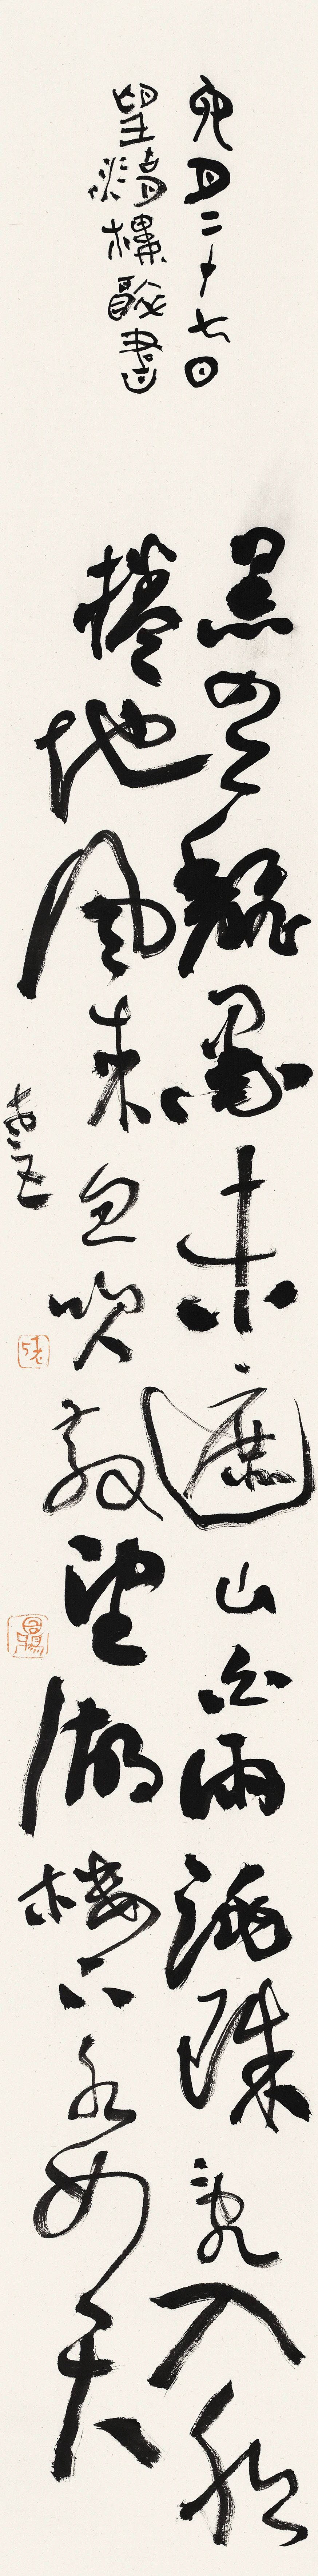 六月二十七日
望湖樓醉書
黑雲翻墨未遮山白雨跳珠亂入船
捲地風來忽吹散望湖樓下水如天